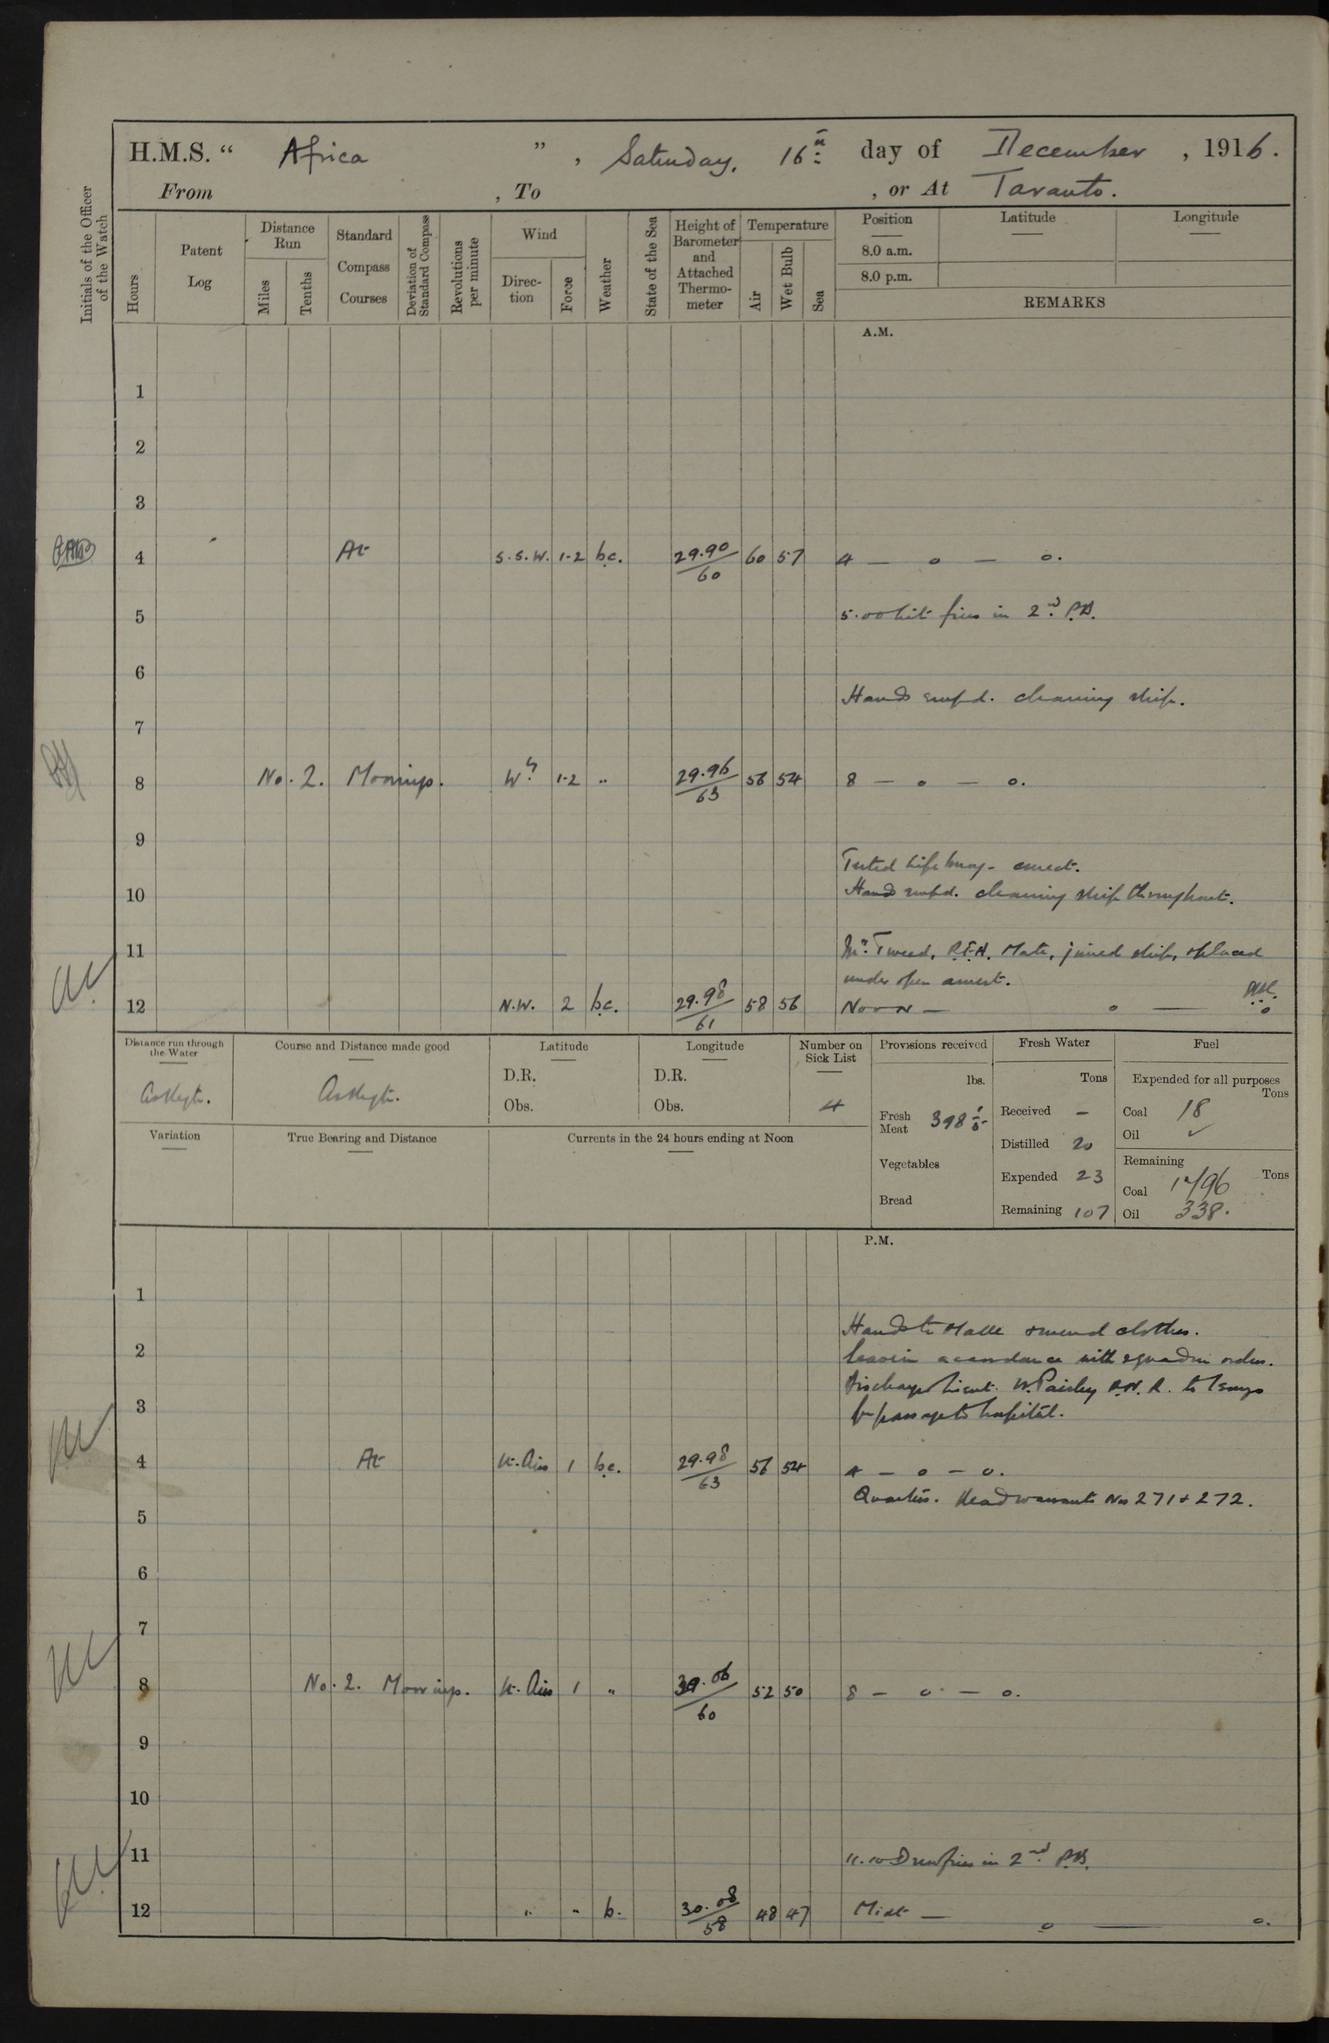 H.M.S. “ Africa ” , Saturday, 16th day of December , 1916.
From , To , or At Taranto.
Initials of the Officer of the Watch
Hours
Patent Log
Distance Run
Miles
Tenths
Standard Compass Courses
Deviation of Standard Compass
Revolutions per minute
Wind
Direction
Force
Weather
State of the Sea
Height of Barometer and Attached Thermometer
Temperature
Air
Wet Bulb
Sea
Position Latitude Longitude
8.0 a.m.
8.0 p.m.
REMARKS
A.M.
1
2
3
4 At S.S.W. 1-2 b.c. 29.90/60 60 57 4 — o — o.
5 5.00 lit fires in 2nd P.B.
6
Hands empd. cleaning ship.
7
8 No. 2. Moorings. Wly 1-2 " 29.96/63 56 54 8 — o — o.
9
Tested life buoy - correct.
10 Hands empd. cleaning ship throughout.
11 Mr. Tweed, Mate, joined ship, & placed
under open arrest.
12 N.W. 2 b.c. 29.98/61 58 56 Noon — o — o
Distance run through the Water
Course and Distance made good
Latitude
D.R.
Obs.
Longitude
D.R.
Obs.
Number on Sick List
4
Provisions received
lbs.
Fresh Meat 398
Vegetables
Bread
Fresh Water
Tons
Received —
Distilled 20
Expended 23
Remaining 107
Fuel
Expended for all purposes
Tons
Coal 18
Oil ✓
Remaining
Tons
Coal 1796
Oil 338.
Variation
True Bearing and Distance
Currents in the 24 hours ending at Noon
P.M.
1
Hands to make & mend clothes.
2 Leave in accordance with squadron orders.
Discharged Lieut. W. Paisley R.N.R. to
3 for passage to hospital.
4 At Lt. Airs 1 b.c. 29.98/63 56 54 4 — o — o.
Quarters. Read warrants Nos 271 & 272.
5
6
7
8 No. 2. Moorings. Lt. Airs 1 " 30.06/60 52 50 8 — o — o.
9
10
11 11.10 Drew fires in 2nd P.B.
12 " " b. 30.08/58 48 47 Midt — o — o.